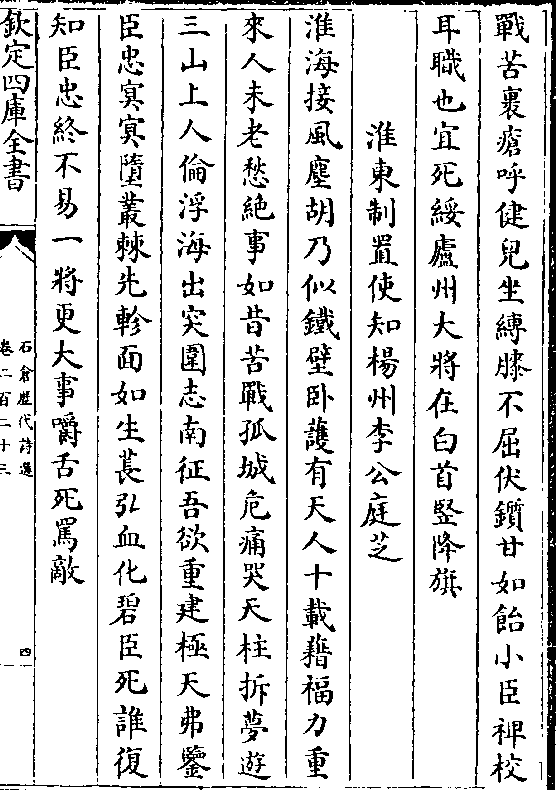 戰苦裹瘡呼健兒坐縛膝不屈伏鑕甘如飴小臣裨校
耳職也宜死綏廬州大將在白首豎降旗
淮東制置使知楊州李公庭芝
淮海接風塵胡乃似鐵壁卧護有天人十載藉福力重
來人未老愁絶事如昔苦戰孤城危痛哭天柱拆夢遊
三山上人倫浮海出突圍志南征吾欲重建極天弗鑒
臣忠㝠㝠墮叢棘先軫面如生萇弘血化碧臣死誰復
知臣忠終不易一將更大事嚼舌死罵敵
欽定四庫全書
石倉歷代詩選
卷二百二十三
四